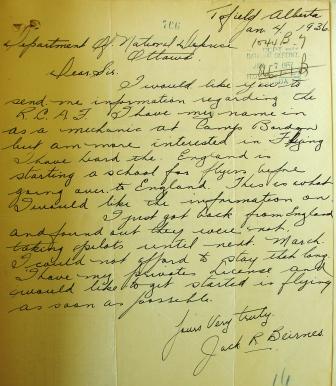 766
Tofield Alberta
Jan. 4, 1936
Department Of National Defense
Ottawa
Dear Sir.
I would like you to
send me information regarding the
R.C.A.F. I have my name in
as a mechanic at Camp Borden
but am more interested in Flying
I have heard the England is
starting a school for flyers before
going over to England. This is what
I would like the information on
I just got back from England
and found out they were not
taking pilots until next March
I could not afford to stay that long.
I have my privates license and
would like to get started in flying
as soon as possible.
Yours Very truly.
Jack R Beirnes